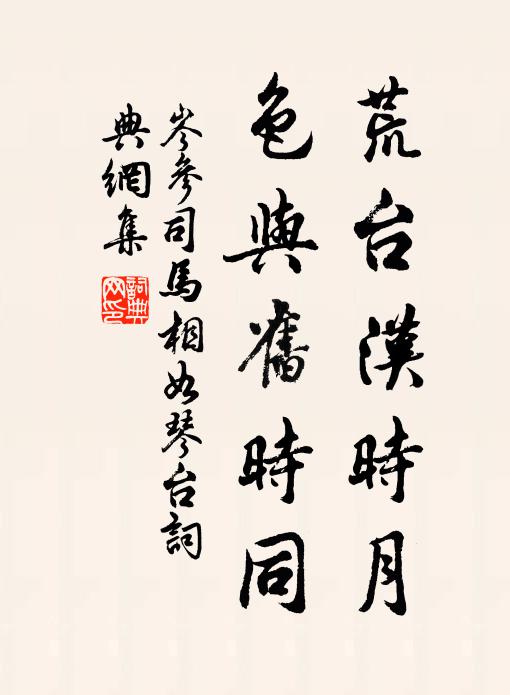 荒台漢時月
色與舊時同
岑參司馬相如琴台詞
典網集
詞典
网印